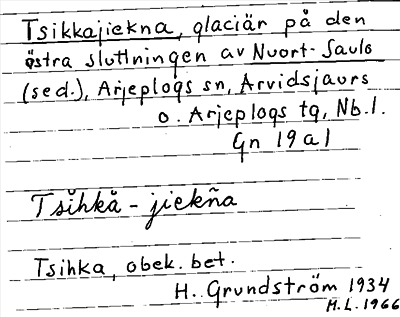 Tsikkajiekna, glaciär på den
östra sluttningen av Nuort-Saulo
(sed.), Arjeplogs sn, Arvidsjaurs
o. Arjeplogs tg, Nb.l.
Gn 19a1
Tsihkå - jiekńa
Tsihka, obek. bet.
H. Grundström 1934
H.L. 1966